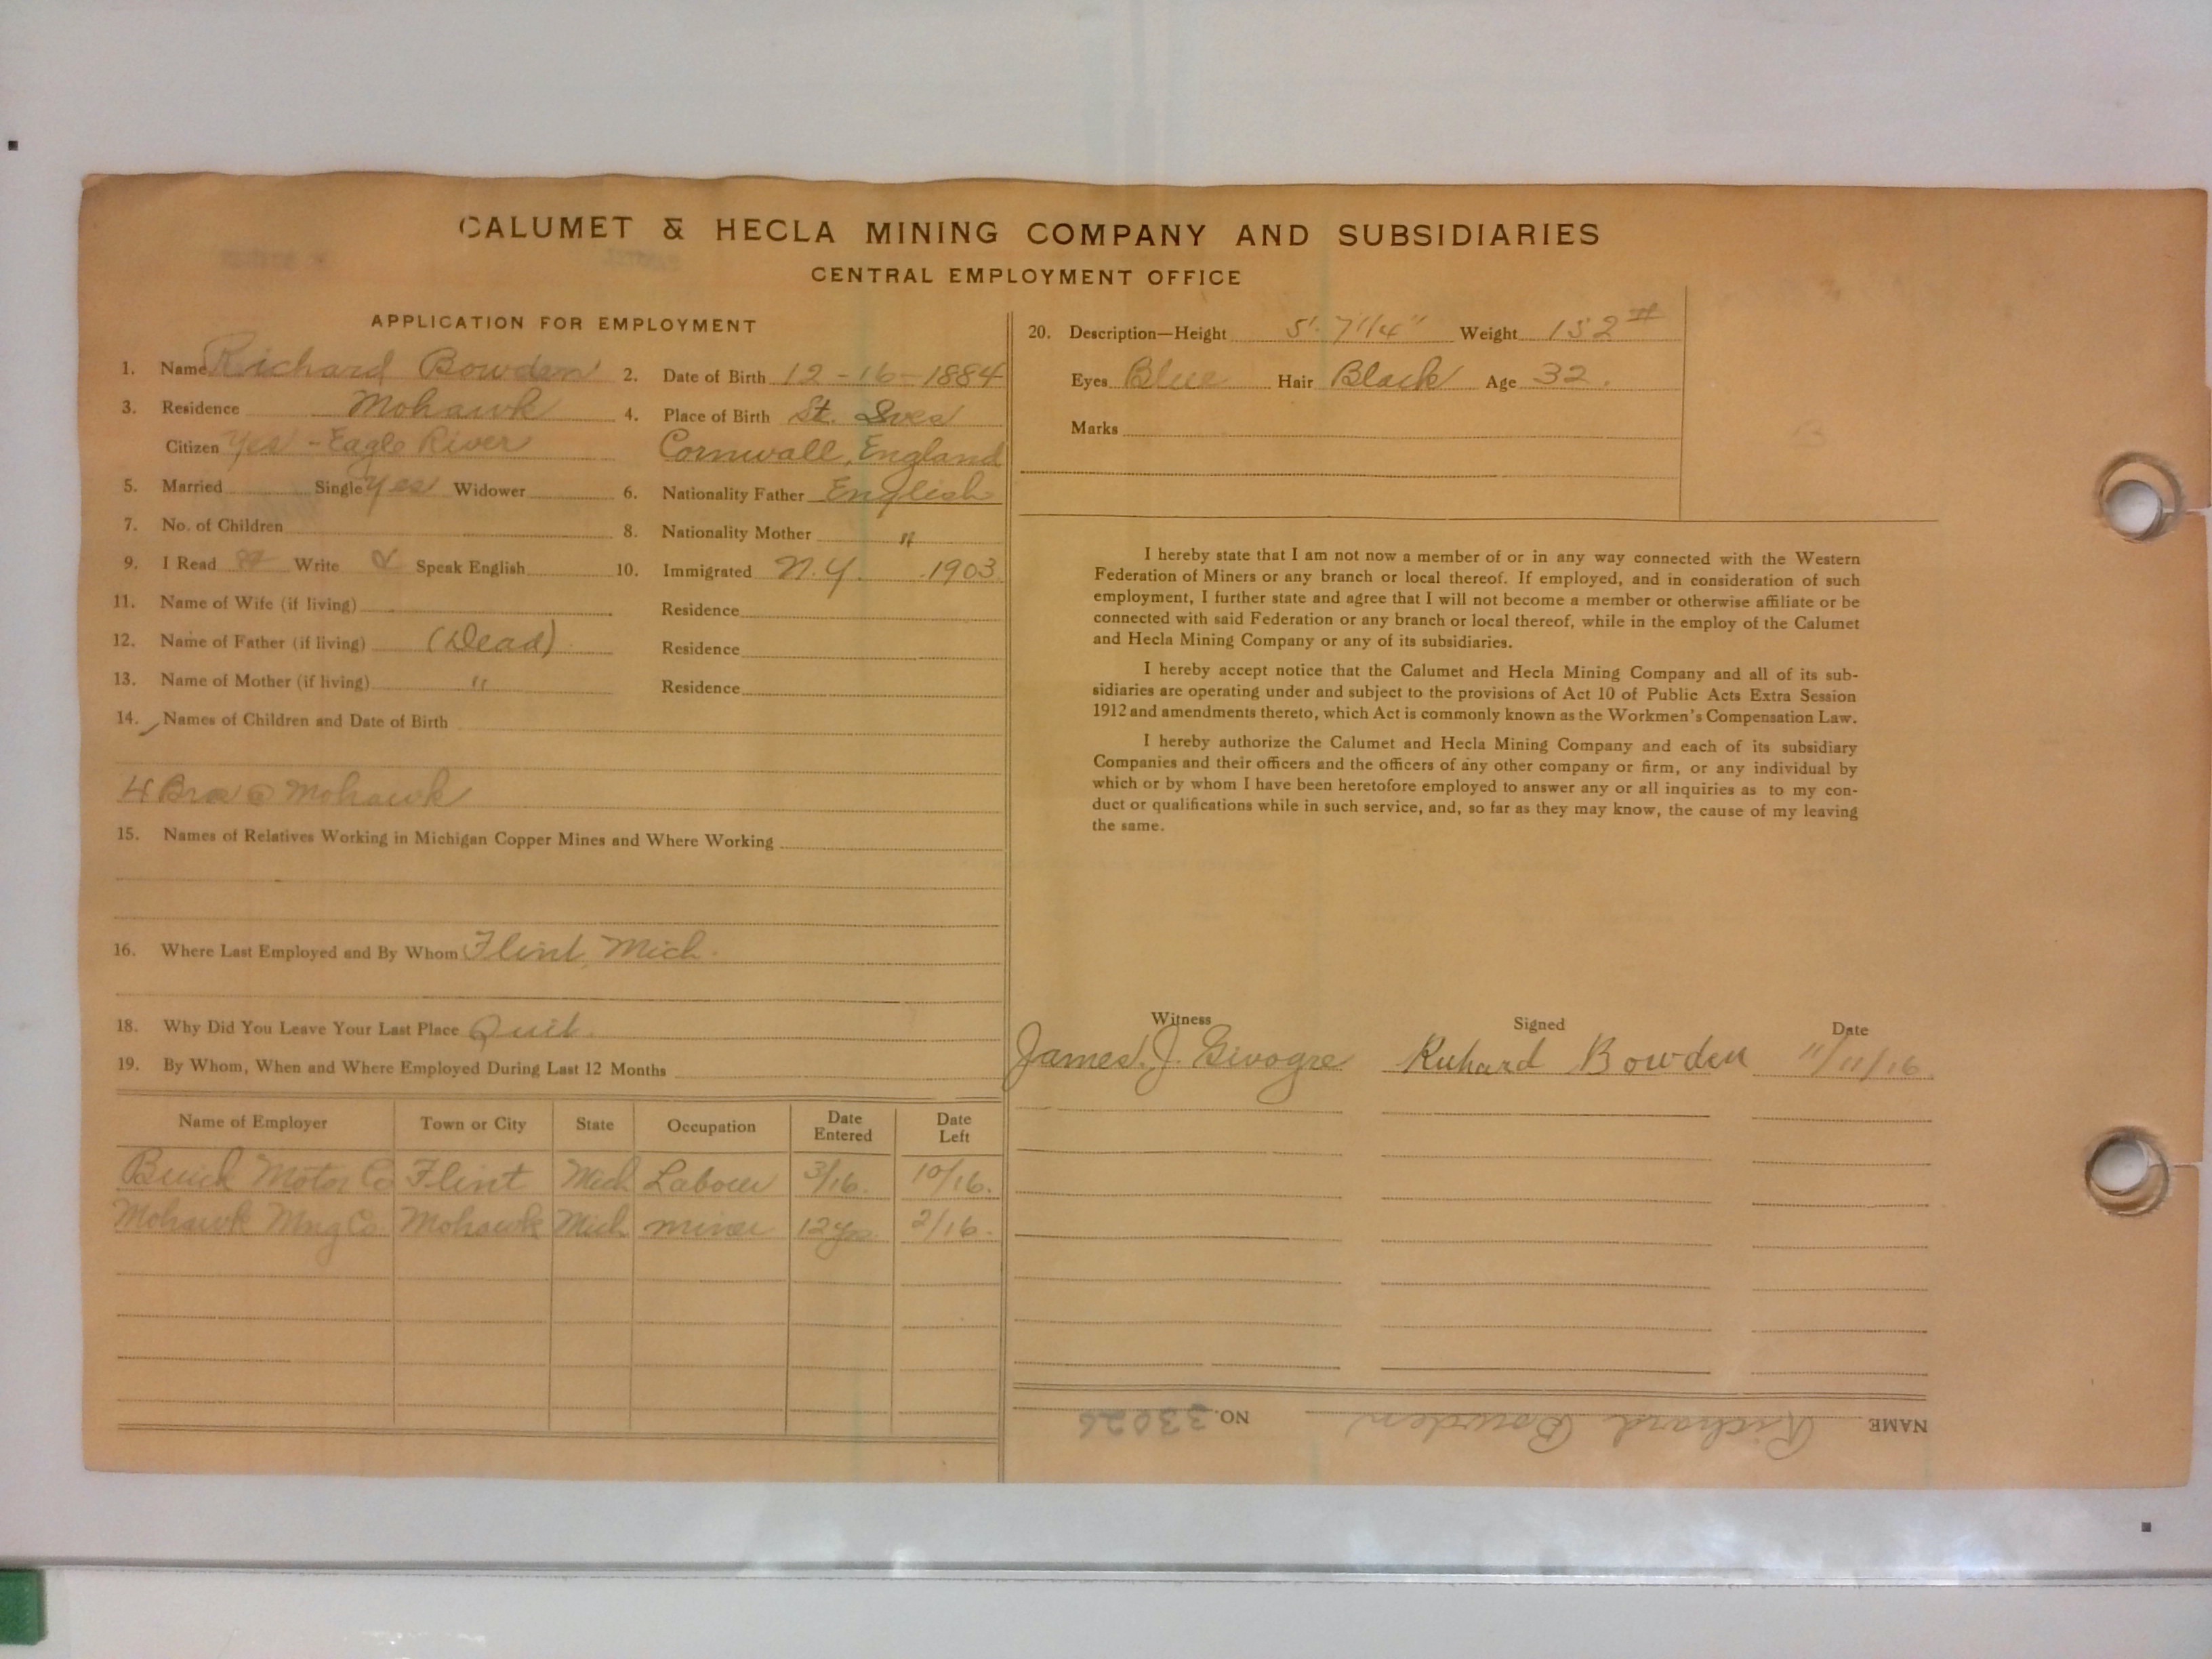 CALUMET & HECLA MINING COMPANY AND SUBSIDIARIES
CENTRAL EMPLOYMENT OFFICE
APPLICATION FOR EMPLOYMENT
1. Name Richard Bowden 2. Date of Birth 12-16-1884
3. Residence Mohawk 4. Place of Birth St. Ives
Citizen Yes - Eagle River Cornwall, England
5. Married Single Yes Widower 6. Nationality Father English
7. No. of Children 8. Nationality Mother "
9. I Read Write & Speak English 10. Immigrated N.Y. 1903
11. Name of Wife (if living) Residence
12. Name of Father (if living) (Dead) Residence
13. Name of Mother (if living) " Residence
14. Names of Children and Date of Birth
4 Bros @ Mohawk
15. Names of Relatives Working in Michigan Copper Mines and Where Working
16. Where Last Employed and By Whom Flint, Mich.
18. Why Did You Leave Your Last Place Quit.
19. By Whom, When and Where Employed During Last 12 Months
Name of Employer Town or City State Occupation Date Entered Date Left
Buick Motor Co Flint Mich Labour 3/16. 10/16.
Mohawk Mng Co. Mohawk Mich miner 12 yrs. 2/16.
20. Description—Height 5'. 7 1/4" Weight 152 #
Eyes Blue Hair Black Age 32.
Marks
I hereby state that I am not now a member of or in any way connected with the Western
Federation of Miners or any branch or local thereof. If employed, and in consideration of such
employment, I further state and agree that I will not become a member or otherwise affiliate or be
connected with said Federation or any branch or local thereof, while in the employ of the Calumet
and Hecla Mining Company or any of its subsidiaries.
I hereby accept notice that the Calumet and Hecla Mining Company and all of its sub-
sidiaries are operating under and subject to the provisions of Act 10 of Public Acts Extra Session
1912 and amendments thereto, which Act is commonly known as the Workmen's Compensation Law.
I hereby authorize the Calumet and Hecla Mining Company and each of its subsidiary
Companies and their officers and the officers of any other company or firm, or any individual by
which or by whom I have been heretofore employed to answer any or all inquiries as to my con-
duct or qualifications while in such service, and, so far as they may know, the cause of my leaving
the same.
Witness Signed Date
James J. Richard Bowden 11/11/16
NAME Richard Bowden NO. 33026